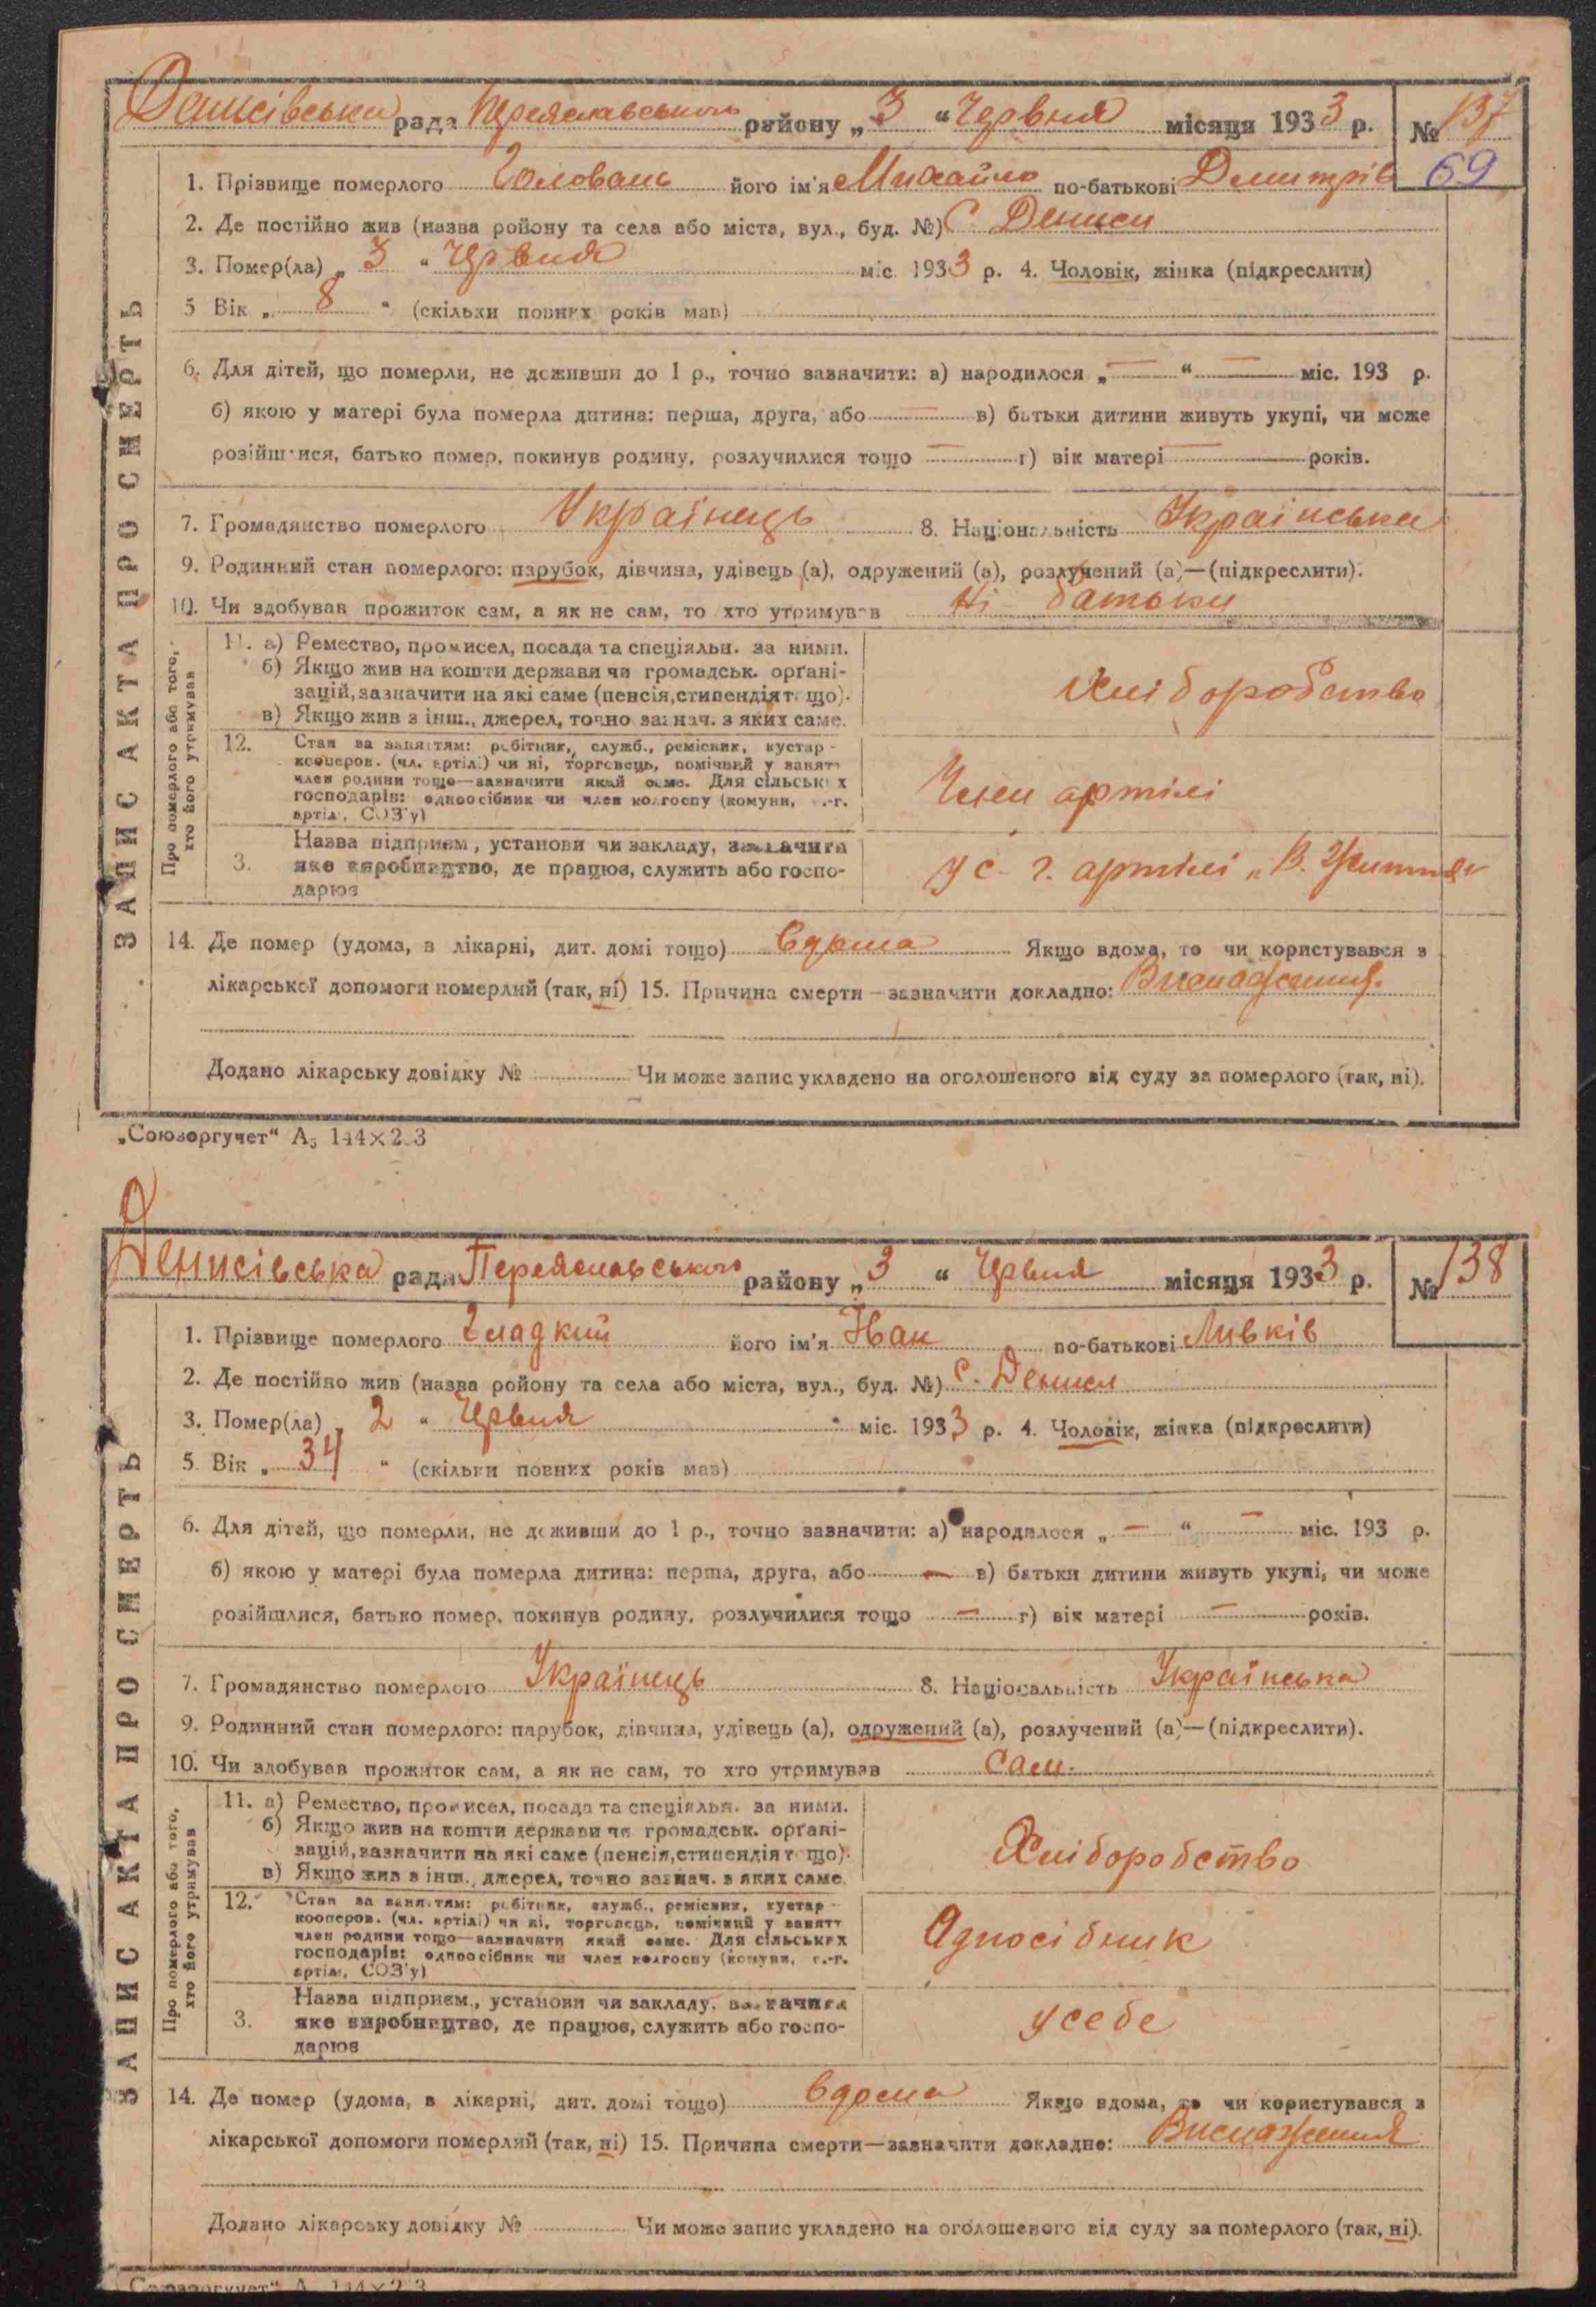 Денисівська рада Переяславського району „3“ Червня місяця 1933 р. № 137
1. Прізвище померлого Головань його ім'я Михайло по-батькові Демитрів 69
2. Де постійно жив (назва ройону та села або міста, вул., буд. №) С. Дениси
3. Помер(ла) „3“ Червня міс. 1933 р. 4. Чоловік, жінка (підкреслити)
5 Вік „8“ (скільки повних років мав)
6. Для дітей, що померли, не доживши до 1 р., точно зазначити: а) народилося „—“ — міс. 193 р.
б) якою у матері була померла дитина: перша, друга, або — в) батьки дитини живуть укупі, чи може
розійшлися, батько помер, покинув родину, розлучилися тощо — г) вік матері — років.
7. Громадянство померлого Українець 8. Національність Українська
9. Родинний стан померлого: парубок, дівчина, удівець (а), одружений (а), розлучений (а)—(підкреслити).
10. Чи здобував прожиток сам, а як не сам, то хто утримував Ні батьки
ЗАПИС АКТА ПРО СМЕРТЬ
Про померлого або того, хто його утримував
11. а) Ремество, промисел, посада та спеціяльн. за ними.
б) Якщо жив на кошти держави чи громадськ. орґані-
зацій, зазначити на які саме (пенсія, стипендія тощо).
в) Якщо жив з інш., джерел, точно зазнач. з яких саме.
Хліборобство
12. Стан за заняттям: робітник, служб., ремісник, кустар-
кооперов. (чл. артілі) чи ні, торговець, помічний у занятт
член родини тощо—зазначити який саме. Для сільських
господарів: одноосібник чи член колгоспу (комуни, с.-г.
артілі, СОЗ'у)
Член артілі
3. Назва підприєм., установи чи закладу, зазначити
яке виробництво, де працює, служить або госпо-
дарює
у с-г. артілі „В. Життя“
14. Де помер (удома, в лікарні, дит. домі тощо) вдома Якщо вдома, то чи користувався з
лікарської допомоги померлий (так, ні) 15. Причина смерти—зазначити докладно: Виснаження.
Додано лікарську довідку № Чи може запис укладено на оголошеного від суду за померлого (так, ні).
„Союзоргучет“ А5 144×203
Денисівська рада Переяславського району „3“ Червня місяця 1933 р. № 138
1. Прізвище померлого Гладкий його ім'я Іван по-батькові Ливків
2. Де постійно жив (назва ройону та села або міста, вул., буд. №) с. Дениси
3. Помер(ла) „2“ Червня міс. 1933 р. 4. Чоловік, жінка (підкреслити)
5. Вік „34“ (скільки повних років мав)
6. Для дітей, що померли, не доживши до 1 р., точно зазначити: а) народилося „—“ — міс. 193 р.
б) якою у матері була померла дитина: перша, друга, або — в) батьки дитини живуть укупі, чи може
розійшлися, батько помер, покинув родину, розлучилися тощо — г) вік матері — років.
7. Громадянство померлого Українець 8. Національність Українська
9. Родинний стан померлого: парубок, дівчина, удівець (а), одружений (а), розлучений (а)—(підкреслити).
10. Чи здобував прожиток сам, а як не сам, то хто утримував сам.
ЗАПИС АКТА ПРО СМЕРТЬ
Про померлого або того, хто його утримував
11. а) Ремество, промисел, посада та спеціяльн. за ними.
б) Якщо жив на кошти держави чи громадськ. орґані-
зацій, зазначити на які саме (пенсія, стипендія тощо).
в) Якщо жив з інш., джерел, точно зазнач. з яких саме.
Хліборобство
12. Стан за заняттям: робітник, служб., ремісник, кустар-
кооперов. (чл. артілі) чи ні, торговець, помічний у занятт
член родини тощо—зазначити який саме. Для сільських
господарів: одноосібник чи член колгоспу (комуни, с.-г.
артілі, СОЗ'у)
Односібник
3. Назва підприєм., установи чи закладу, зазначити
яке виробництво, де працює, служить або госпо-
дарює
у себе
14. Де помер (удома, в лікарні, дит. домі тощо) вдома Якщо вдома, то чи користувався з
лікарської допомоги померлий (так, ні) 15. Причина смерти—зазначити докладно: Виснаження
Додано лікарську довідку № Чи може запис укладено на оголошеного від суду за померлого (так, ні).
„Союзоргучет“ А5 144×203